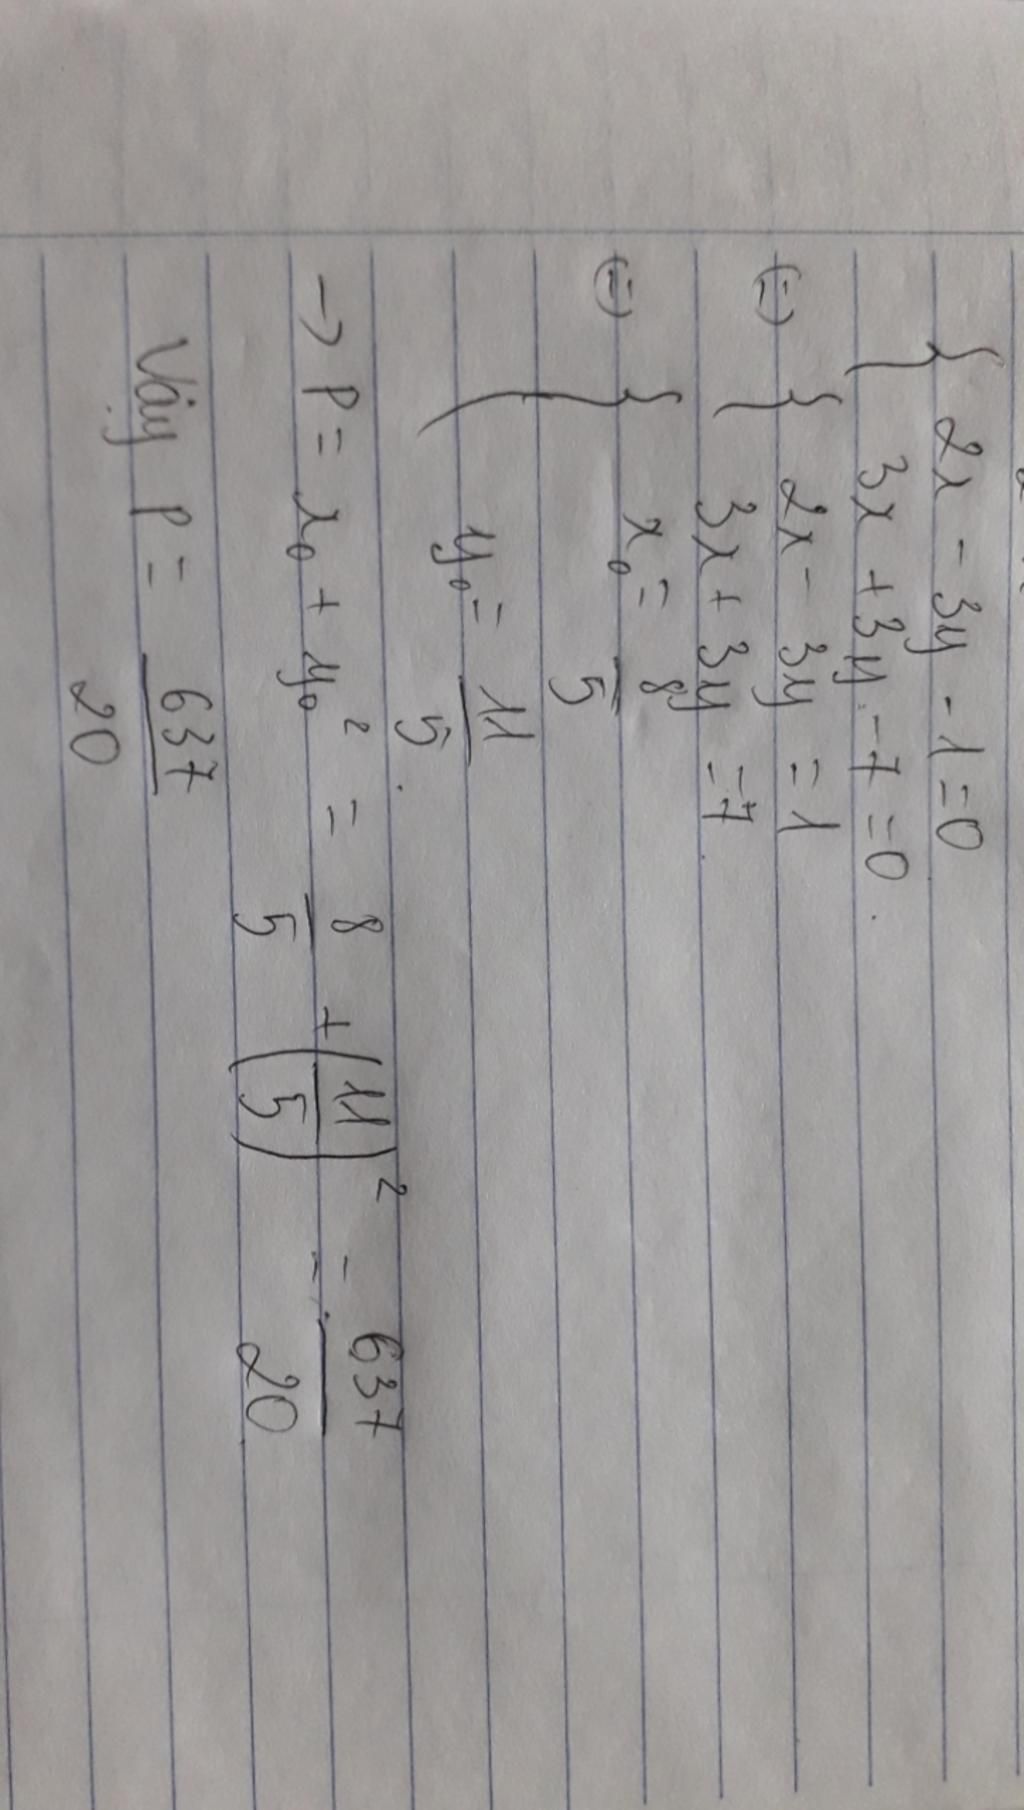 { 2x - 3y - 1 = 0
3x + 3y - 7 = 0
(=) { 2x - 3y = 1
3x + 3y = 7
(=) { x₀ = 8/5
y₀ = 11/5
→ P = x₀ + y₀² = 8/5 + (11/5)² = 637/20
Vậy P = 637/20